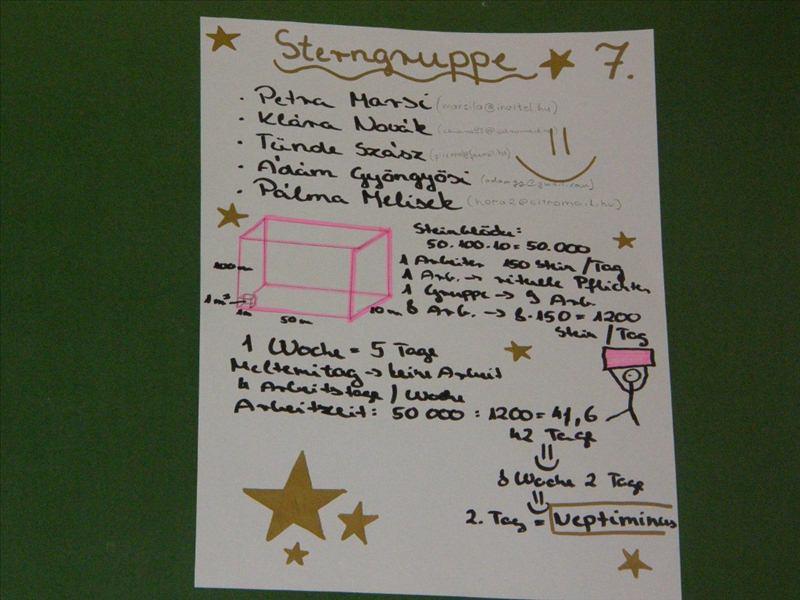 Sterngruppe 7.
• Petra Marsi (marsila@invitel.hu)
• Klára Novák
• Tünde Szász
• Ádám Gyöngyösi
• Pálma Melisek (hora2@citromail.hu)
Steinblöcke:
50·100·10=50.000
1 Arbeiter 150 Stein/Tag
1 Arb. → rituelle Pflichten
1 Gruppe → 9 Arb.
8 Arb. → 8·150=1200
Stein/Tag
100m
1m³
1m
50m
10m
1 Woche = 5 Tage
Meltemitag → keine Arbeit
4 Arbeitstage/Woche
Arbeitszeit: 50 000 : 1200 = 41,6
42 Tage
Woche 2 Tage
2. Tag = Neptiminus